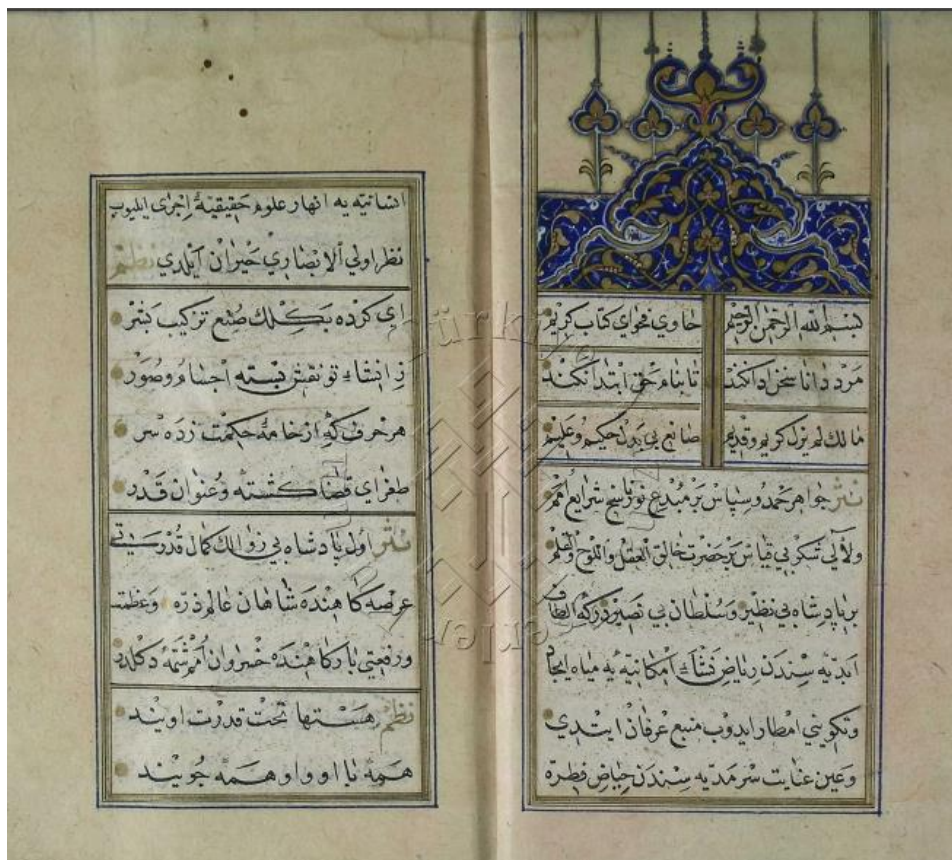 بسم الله الرحمن الرحيم حاوي فحواي كتاب كريم
مرد دانا سخن ادا نكند تا بنام حق ابتدا نكند
مالك لم يزل كريم و قديم صانع بي بدل حكيم و عليم
نثر جواهر حمد و سپاس بر مبدع نو ناسخ شرايع امم
ولآلي شكر بي قياس بر حضرت خالق العقل واللوح والقلم
بر پادشاه بي نظير و سلطان بي نصير دركه الطاف
ابديه سندن رياض نشاء امكانيه يه مياه ايجاد
و تكويني امطار ايدوب منبع عرفان ايتدي
و عين عنايت سرمديه سندن حياض فطرة
انسانيه يه انهار علوم حقيقية اجرى ايليوب
نظر اولي الابصاري حيران ايلدي نظم
اي كرده بكلك صنع تركيب بشر
ز انشاء تو نقش بسته اجسام و صور
هر حرف كه از خامه حكمت زده سر
طغراي قضا كشته و عنوان قدر
نثر اول پادشاه بي زوالك كمال قدرتي
عرصه كاهنده شاهان عالم ذره و عظمت
و رفعتي باركاهنده خسروان امم پشه دكلدر
نظم هستها تحت قدرت اويند
همه با او و او همه جويند